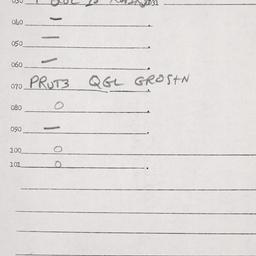 040 —
050 —
060 —
070 PRUT3 QGL GROSTN
080 O
090 —
100 O
101 O